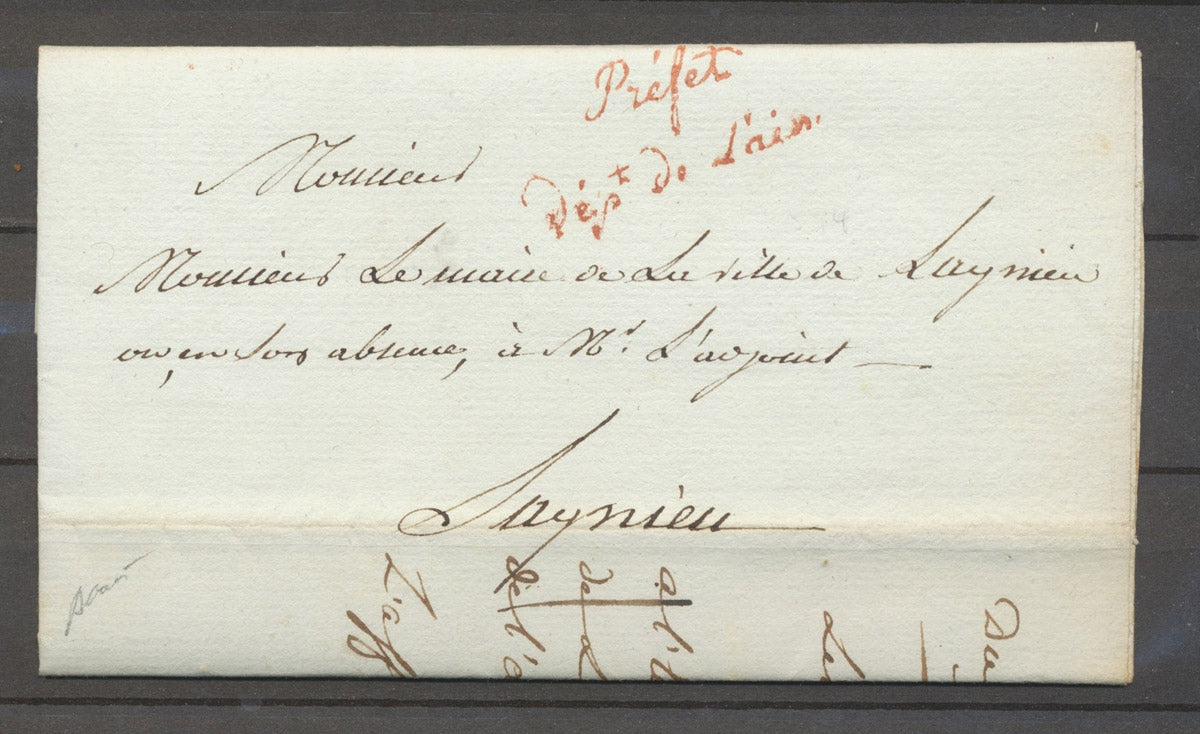 Préfet
Dép.t de L'ain.
Monsieur
Monsieur Le maire de La ville de Lagnieu
ou, en son absence, à Mr. L'adjoint
Lagnieu
Du
a l'
de
de l'
L'aff